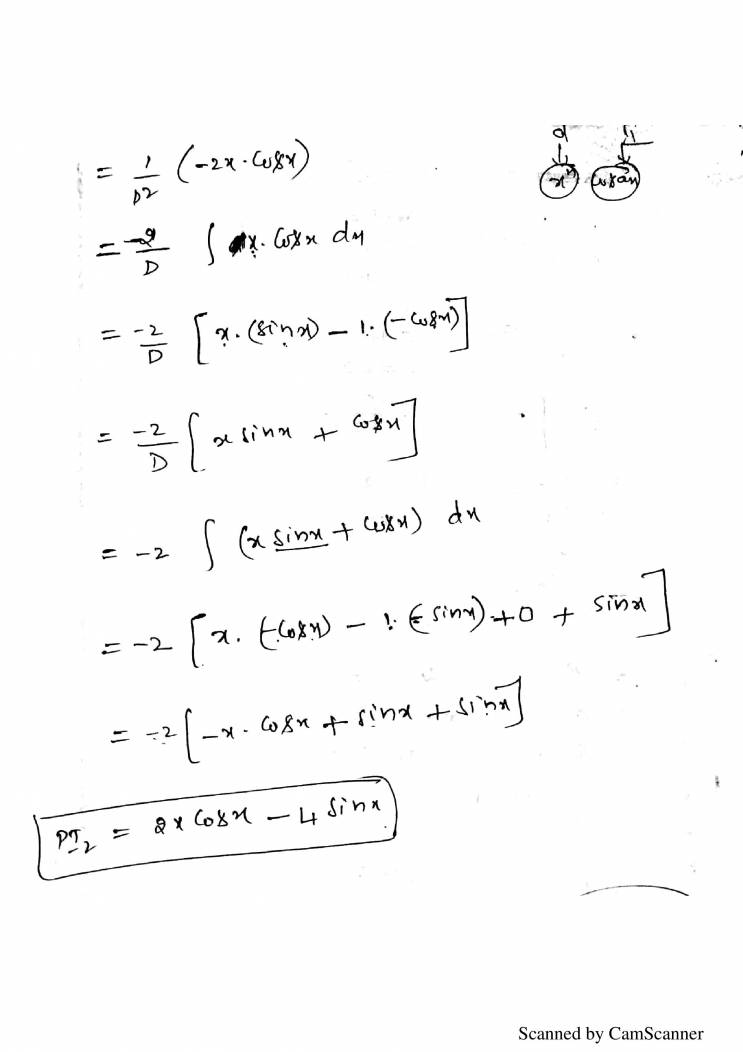 d
= 1/D2 (-2x · cosx)
x^n cosax
= -2/D ∫ x · cosx dx
= -2/D [x · (sinx) - 1 · (-cosx)]
= -2/D [x sinx + cosx]
= -2 ∫ (x sinx + cosx) dx
= -2 [x · (-cosx) - 1 · (-sinx) + 0 + sinx]
= -2 [-x · cosx + sinx + sinx]
PI2 = 2x cosx - 4 sinx
Scanned by CamScanner